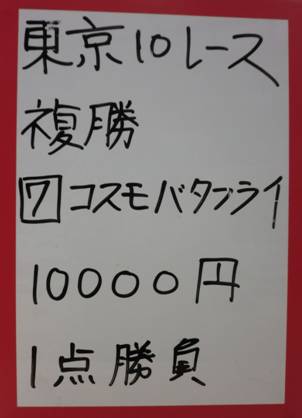 東京10レース
複勝
7 コスモバタフライ
10000円
1点勝負